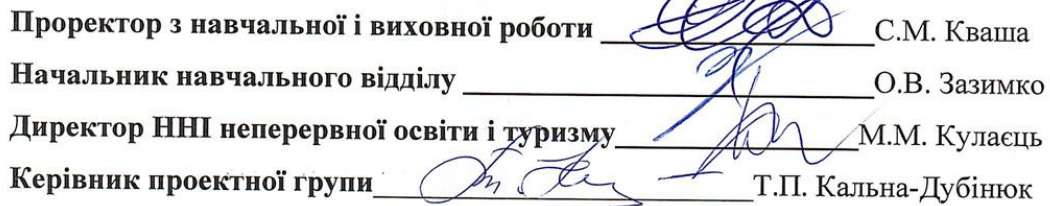 Проректор з навчальної і виховної роботи С.М. Кваша
Начальник навчального відділу О.В. Зазимко
Директор ННІ неперервної освіти і туризму М.М. Кулаєць
Керівник проектної групи Т.П. Кальна-Дубінюк